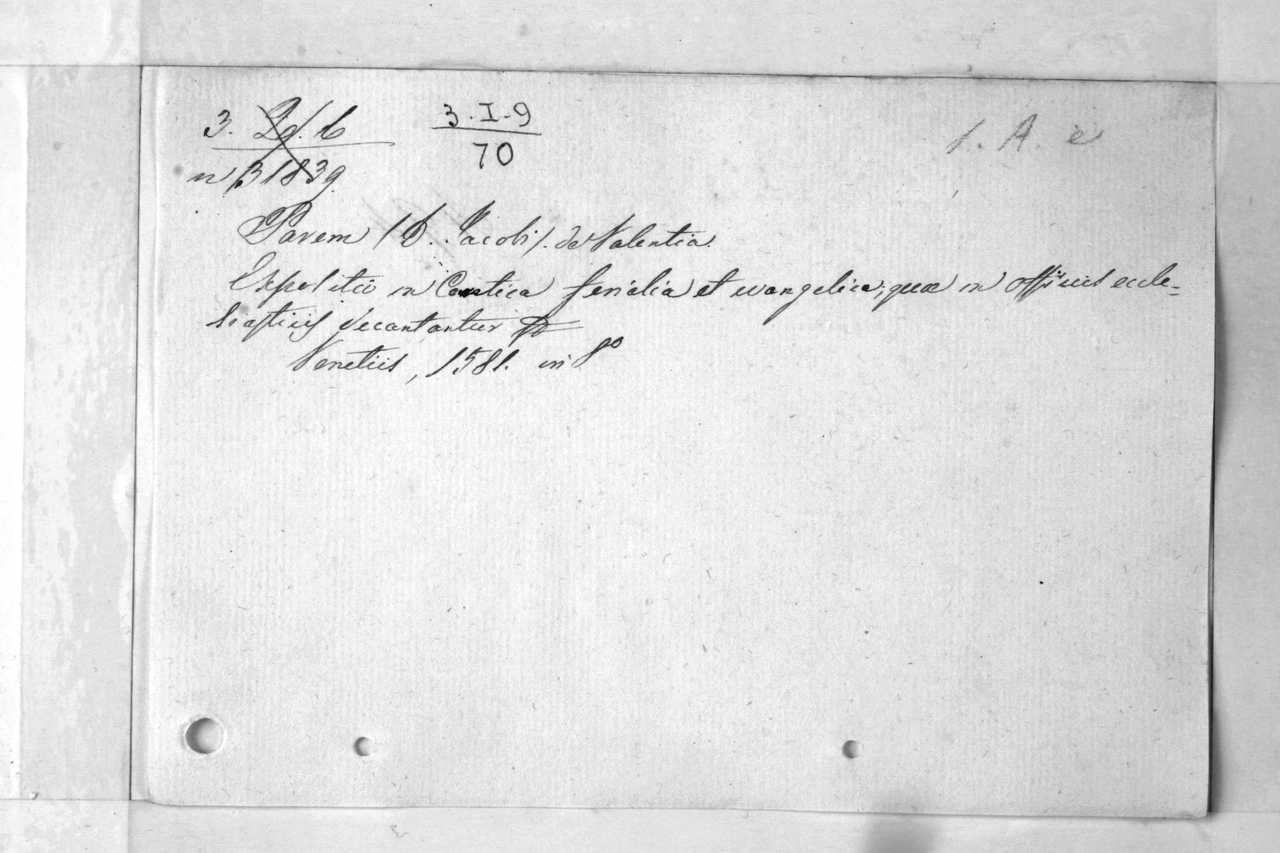 3. 2d. 6
3.I.9
70
1. A. e
n 31839
Parem /D. Jacobi/. de Valentia
Expositio in Cantica ferialia et evangelica, quæ in officiis eccle-
siasticis decantantur
Venetiis, 1581. in 8º